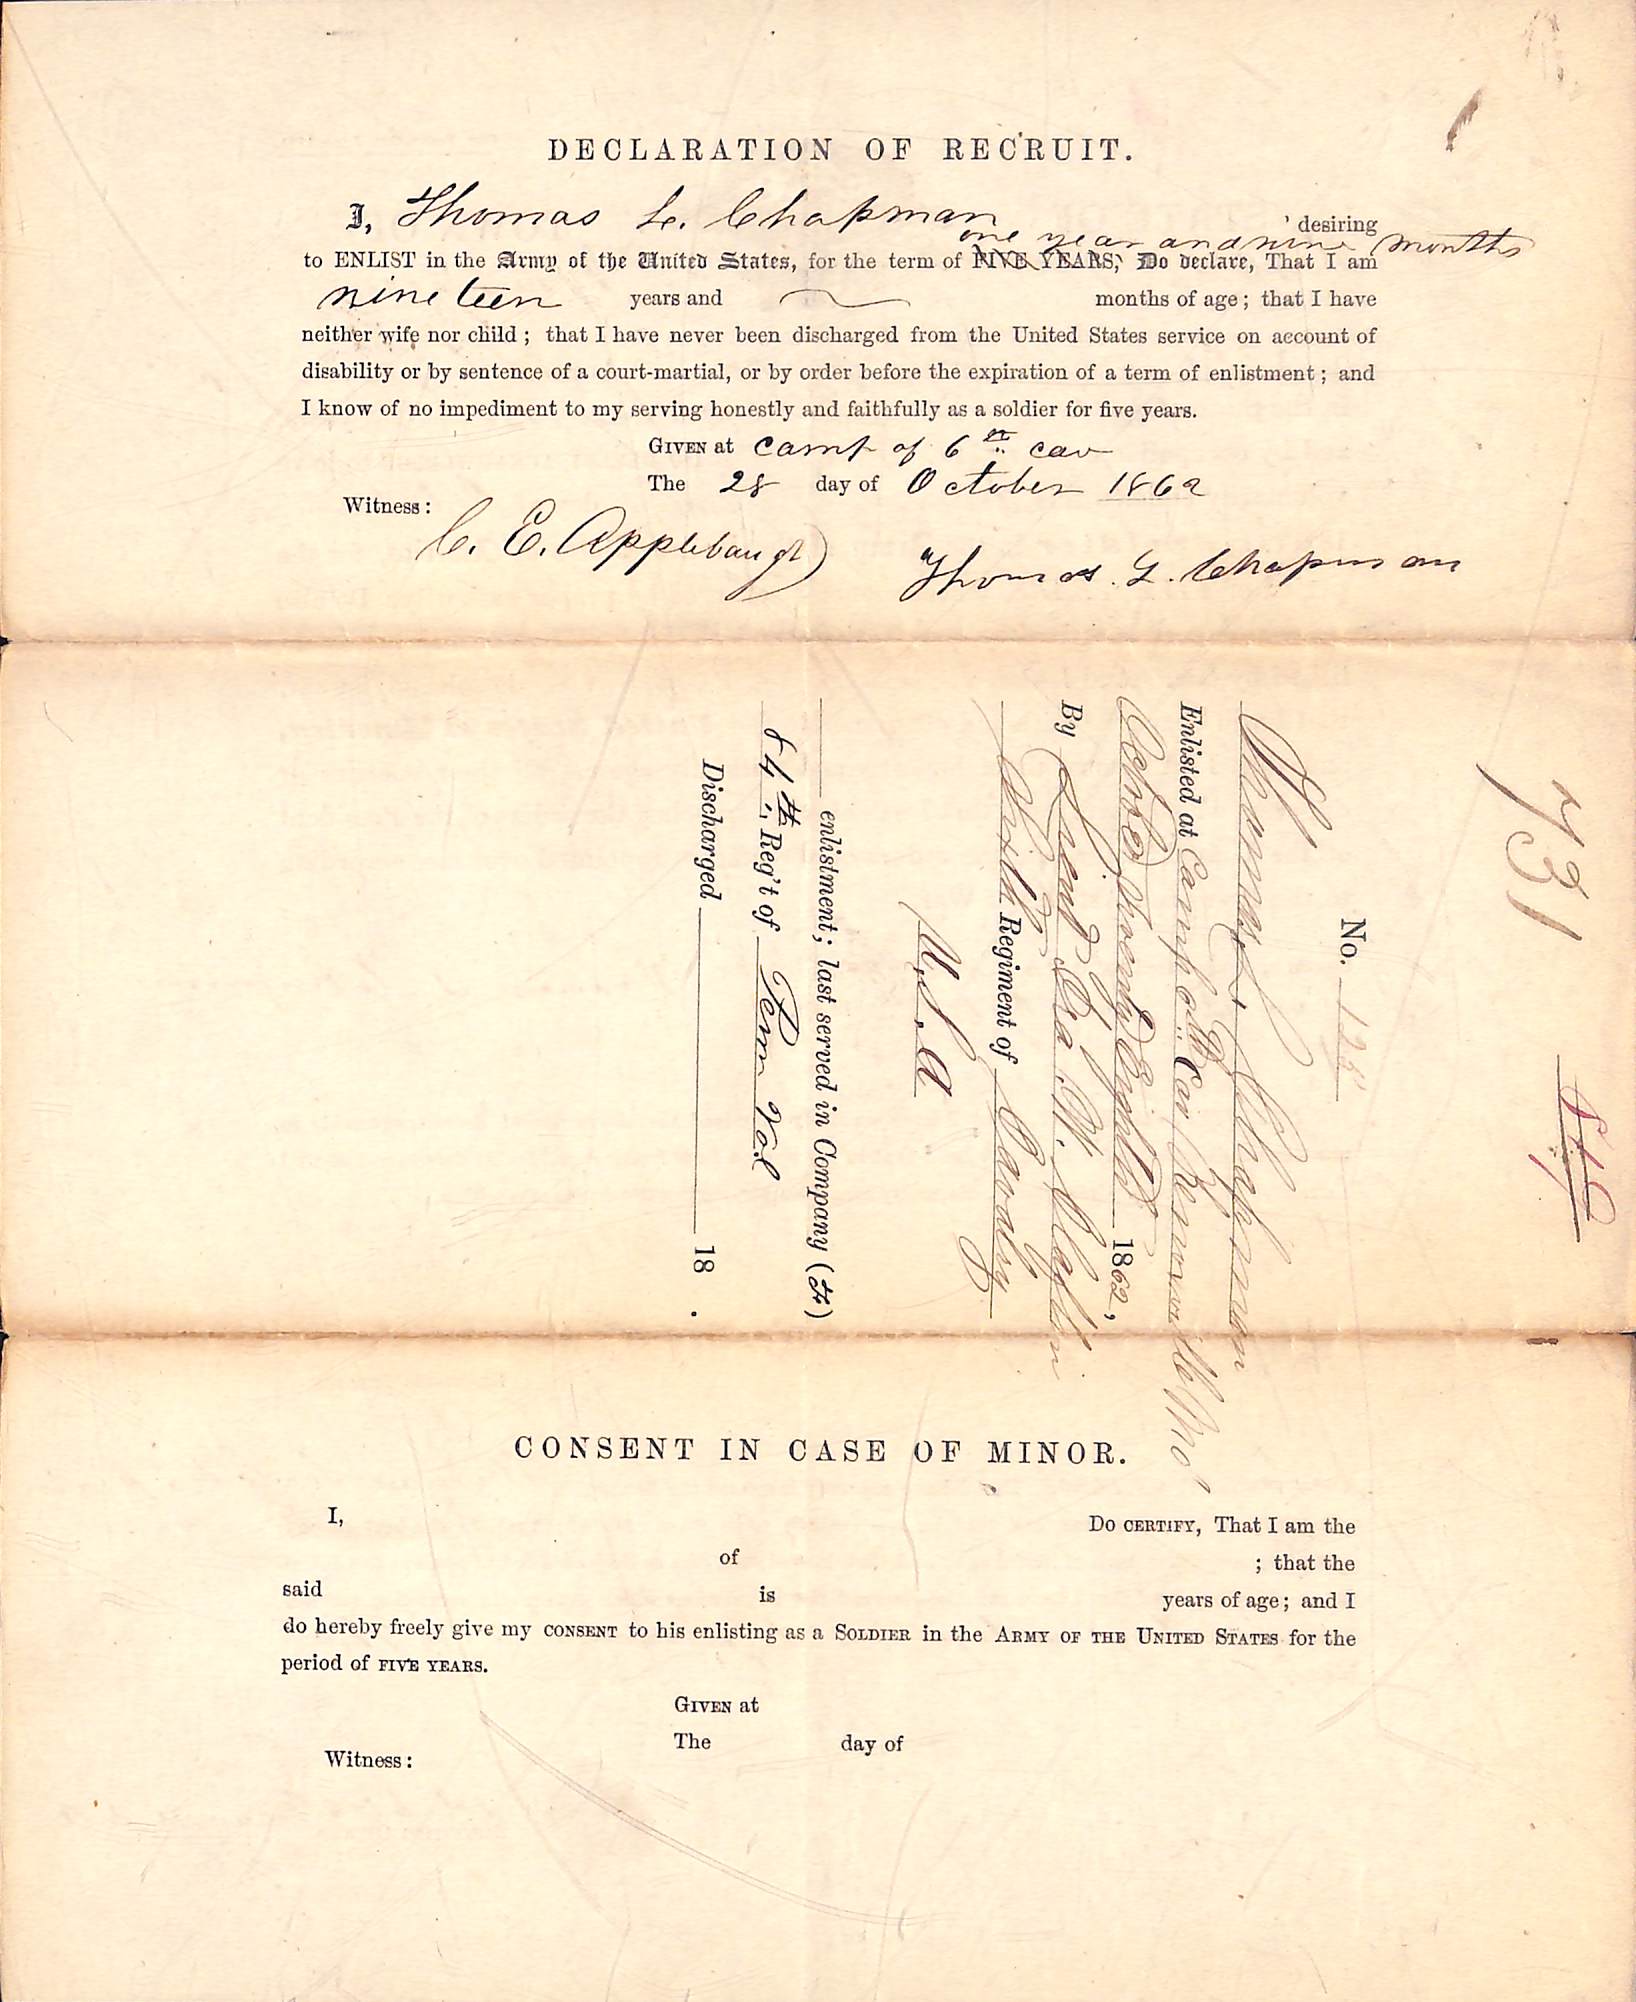 DECLARATION OF RECRUIT.
I, Thomas L. Chapman desiring
one year and nine months
to ENLIST in the Army of the United States, for the term of FIVE YEARS, Do declare, That I am
nineteen years and months of age; that I have
neither wife nor child; that I have never been discharged from the United States service on account of
disability or by sentence of a court-martial, or by order before the expiration of a term of enlistment; and
I know of no impediment to my serving honestly and faithfully as a soldier for five years.
GIVEN at Camp of 6th cav
The 28 day of October 1862
Witness:
C. E. Applebaugh
Thomas. L. Chapman
731
No. 125
Thomas L. Chapman
Enlisted at Camp 6th Cav
October Twenty Eighth 1862,
By Lieut Ira W. Claflin
Sixth Regiment of Cavalry
U.S.A
enlistment; last served in Company (F)
84th Reg't of Penn Vol
Discharged 18 .
CONSENT IN CASE OF MINOR.
I, DO CERTIFY, That I am the
of ; that the
said is years of age; and I
do hereby freely give my CONSENT to his enlisting as a SOLDIER in the ARMY OF THE UNITED STATES for the
period of FIVE YEARS.
GIVEN at
The day of
Witness: